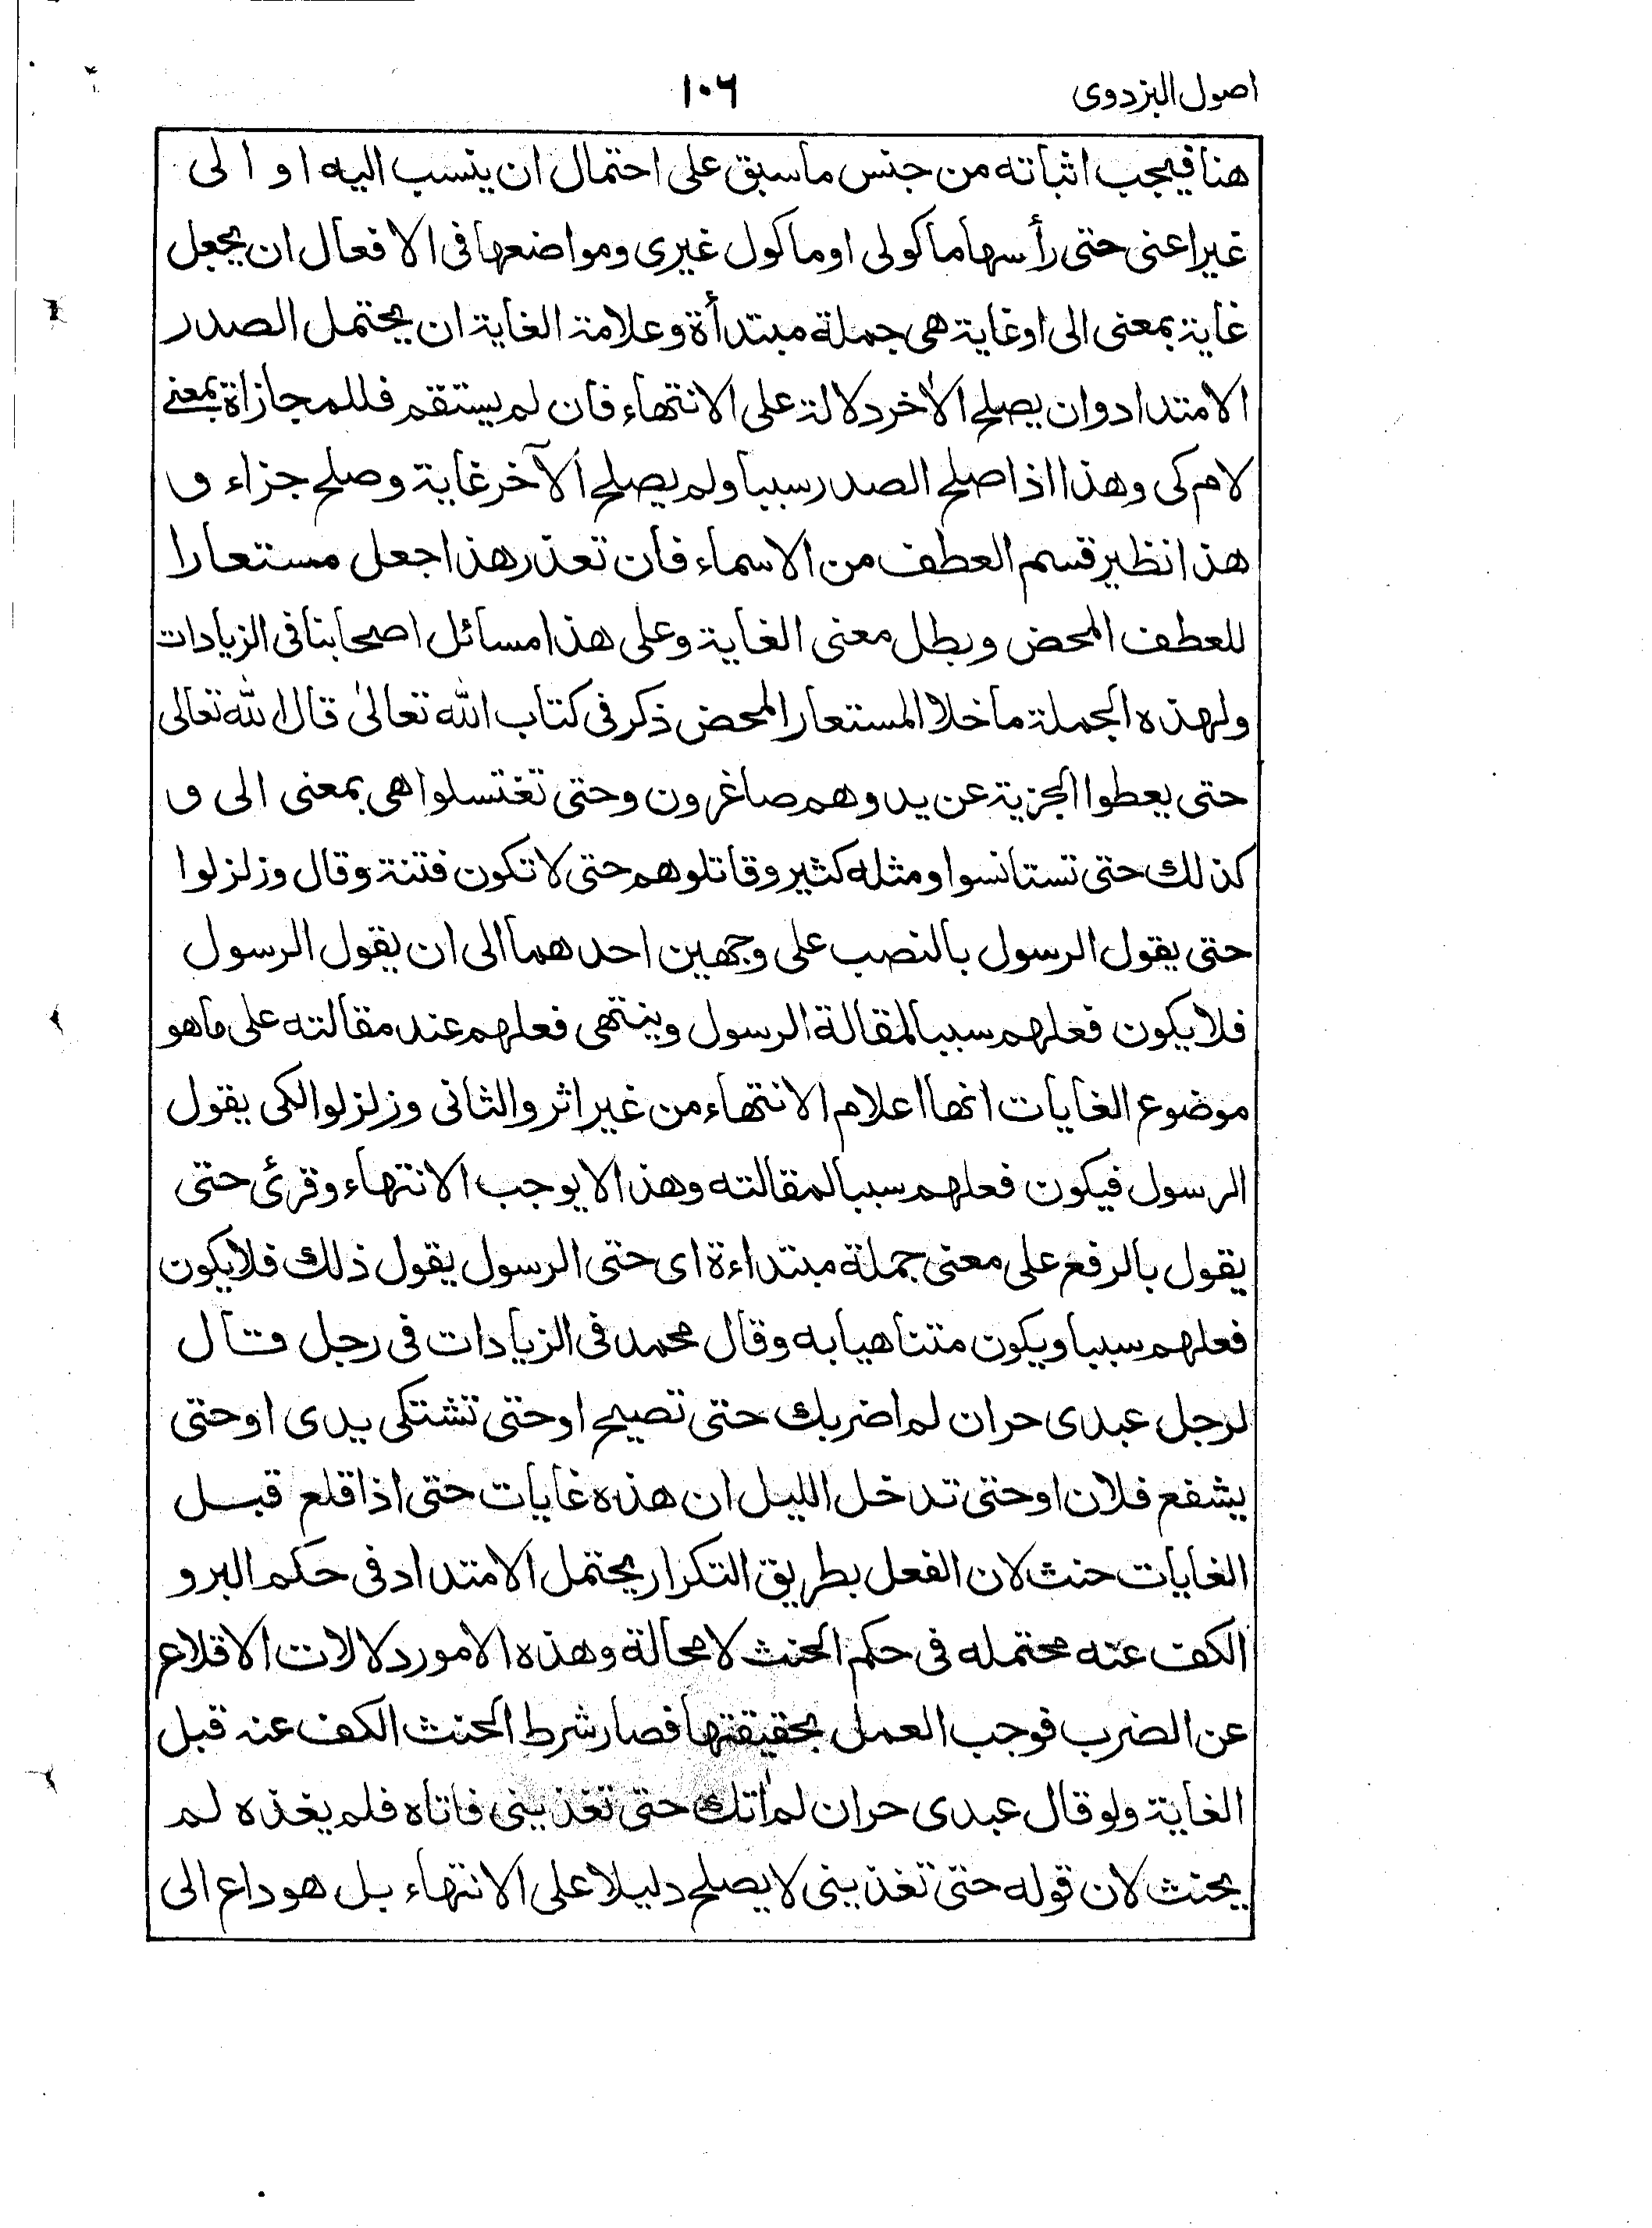 اصول البزدوى
١٠٦
هنا فيجب اثباته من جنس ما سبق على احتمال ان ينسب اليه او الى
غيرا عنى حتى رأسها مأكولى او مأكول غيرى ومواضعها فى الافعال ان يجعل
غاية بمعنى الى او غاية هى جملة مبتدأة وعلامة الغاية ان يحتمل الصدر
الامتداد وان يصلح الأخر دلالة على الانتهاء فان لم يستقم فللمجازاة بمعنے
لام كى وهذا اذا صلح الصدر سببا ولم يصلح الآخر غاية وصلح جزاء و
هذا نظير قسم العطف من الاسماء فان تعذر هذا جعل مستعارا
للعطف المحض وبطل معنى الغاية وعلى هذا مسائل اصحابنا فى الزيادات
ولهذه الجملة ما خلا المستعار المحض ذكر فى كتاب الله تعالىٰ قال الله تعالى
حتى يعطوا الجزية عن يد وهم صاغرون وحتى تغتسلوا هى بمعنى الى و
كذلك حتى تستانسوا ومثله كثير وقاتلوهم حتى لا تكون فتنة وقال وزلزلوا
حتى يقول الرسول بالنصب على وجهين احدهما الى ان يقول الرسول
فلا يكون فعلهم سببا لمقالة الرسول وينتهى فعلهم عند مقالته على ما هو
موضوع الغايات انها اعلام الانتهاء من غير اثر والثانى وزلزلوا لكى يقول
الرسول فيكون فعلهم سببا لمقالته وهذا لا يوجب الانتهاء وقرئ حتى
يقول بالرفع على معنى جملة مبتداءة اى حتى الرسول يقول ذلك فلا يكون
فعلهم سببا ويكون متناهيا به وقال محمد فى الزيادات فى رجل قال
لرجل عبدى حر ان لم اضربك حتى تصيح او حتى تشتكى يدى او حتى
يشفع فلان او حتى تدخل الليل ان هذه غايات حتى اذا قلع قبل
الغايات حنث لان الفعل بطريق التكرار يحتمل الامتداد فى حكم البر و
الكف عنه محتمله فى حكم الحنث لا محالة وهذه الامور دلالات الاقلاع
عن الضرب فوجب العمل بحقيقتها فصار شرط الحنث الكف عنه قبل
الغاية ولو قال عبدى حر ان لم اٰتك حتى تغذينى فاتاه فلم يغذه لم
يحنث لان قوله حتى تغذينى لا يصلح دليلا على الانتهاء بل هو داع الى